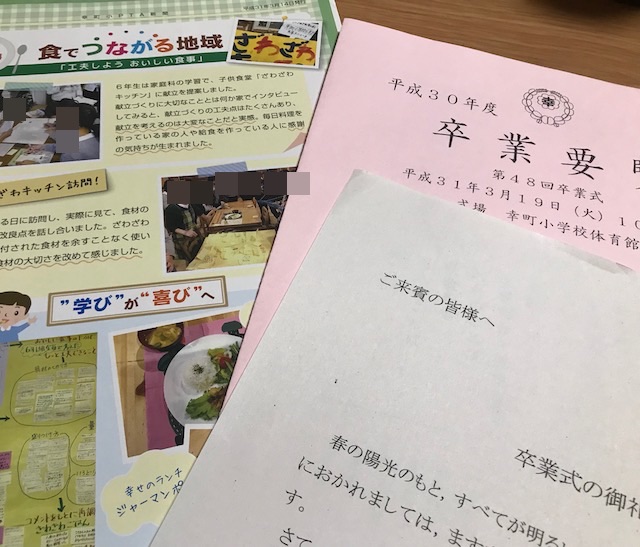 幸町小PTA新聞
平成31年3月14日発行
食でつながる地域
「工夫しよう おいしい食事」
ざわざわ
6年生は家庭科の学習で、子供食堂「ざわざわ
キッチン」に献立を提案しました。
献立づくりに大切なこととは何か家でインタビュー
してみると、献立づくりの工夫点はたくさんあり、
献立を考えるのは大変なことだと実感。毎日料理を
作っている家の人や給食を作っている人に感謝
の気持ちが生まれました。
ざわキッチン訪問!
る日に訪問し、実際に見て、食材の
改良点を話し合いました。ざわざわ
付された食材を余すことなく使い
食材の大切さを改めて感じました。
"学び"が"喜び"へ
幸せのランチ
ジャーマンポ
平成30年度
幸
卒業要
第48回卒業式
平成31年3月19日(火)10
式場 幸町小学校体育館
ご来賓の皆様へ
卒業式の御礼
春の陽光のもと,すべてが明る
におかれましては,ます
す。
さて